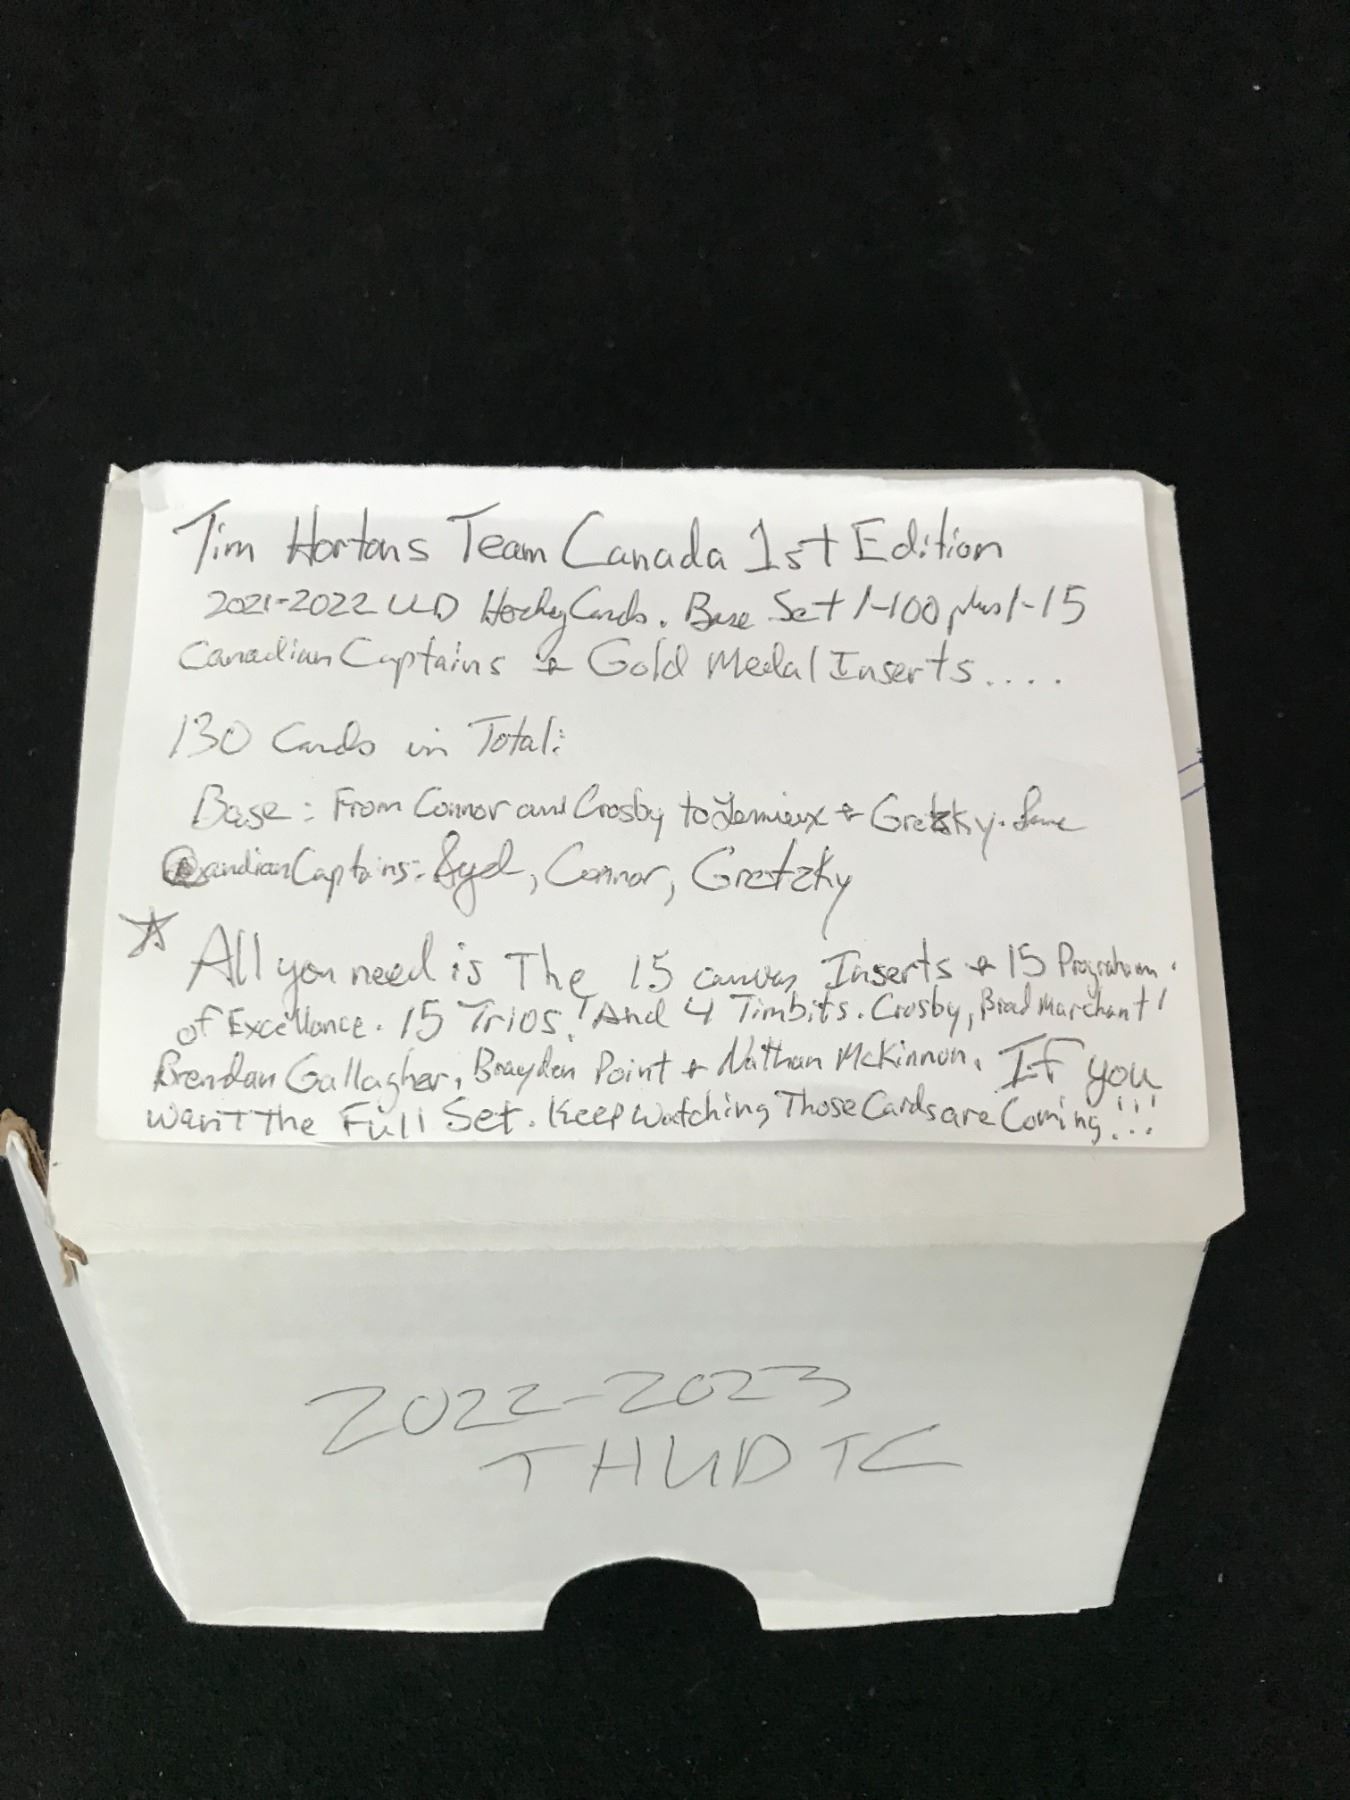 Tim Hortons Team Canada 1st Edition
2021-2022 UD Hockey Cards. Base Set 1-100 plus 1-15
Canadian Captains + Gold Medal Inserts....
130 Cards in Total:
Base: From Connor and Crosby to Lemieux + Gretzky.
Canadian Captains: Syd, Connor, Gretzky
All you need is The 15 canvas Inserts + 15 Prograhum
of Excellance. 15 Trios! And 4 Timbits. Crosby, Brad Marchant!
Brendan Gallagher, Brayden Point + Nathan McKinnon. If you
want the Full Set. Keep Watching Those Cards are Coming!!!
2022-2023
THUD TC